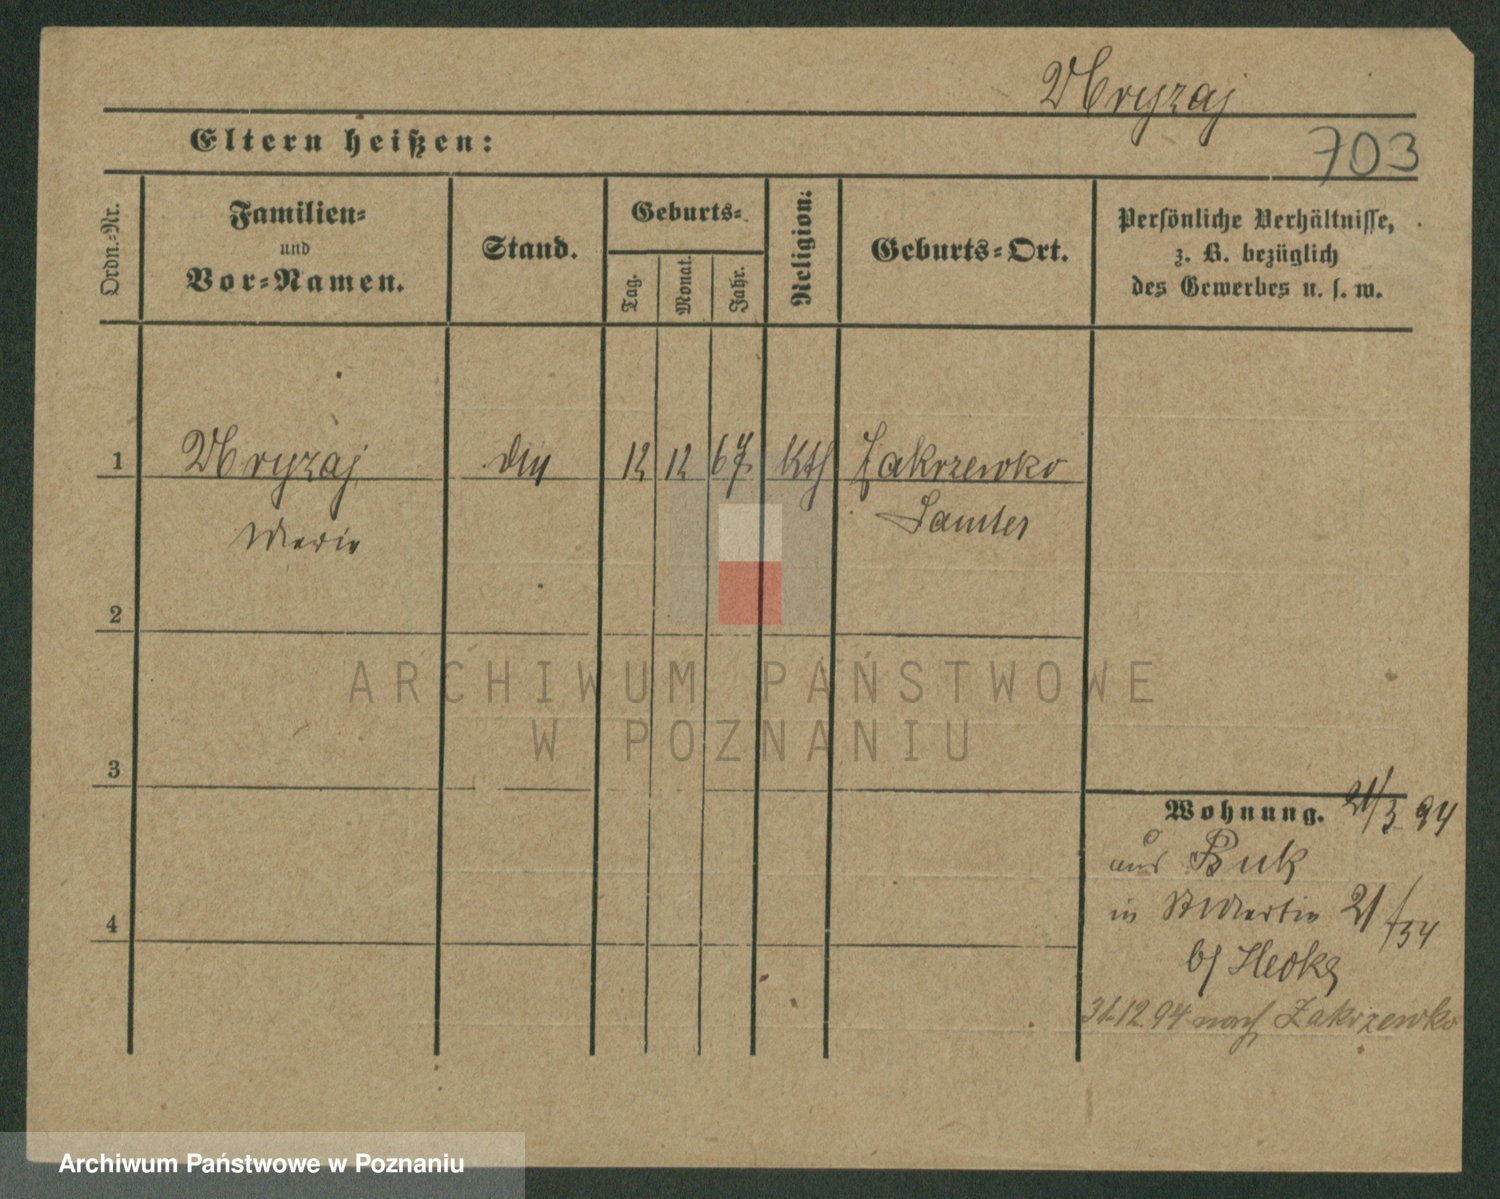 Wryzaj
Eltern heißen:
703
Ordn.-Nr.
Familien-
und
Vor-Namen.
Stand.
Geburts-
Tag.
Monat.
Jahr.
Religion.
Geburts-Ort.
Persönliche Verhältnisse,
z. B. bezüglich
des Gewerbes u. s. w.
1 Wryzaj 12 12 67 kth Zakrzewko
Marie Samter
2
ARCHIWUM PAŃSTWOWE
W POZNANIU
3
Wohnung. 21/3 94
aus Buk
in St Martin 21/34
b/
4
31.12.94 nach Zakrzewko
Archiwum Państwowe w Poznaniu